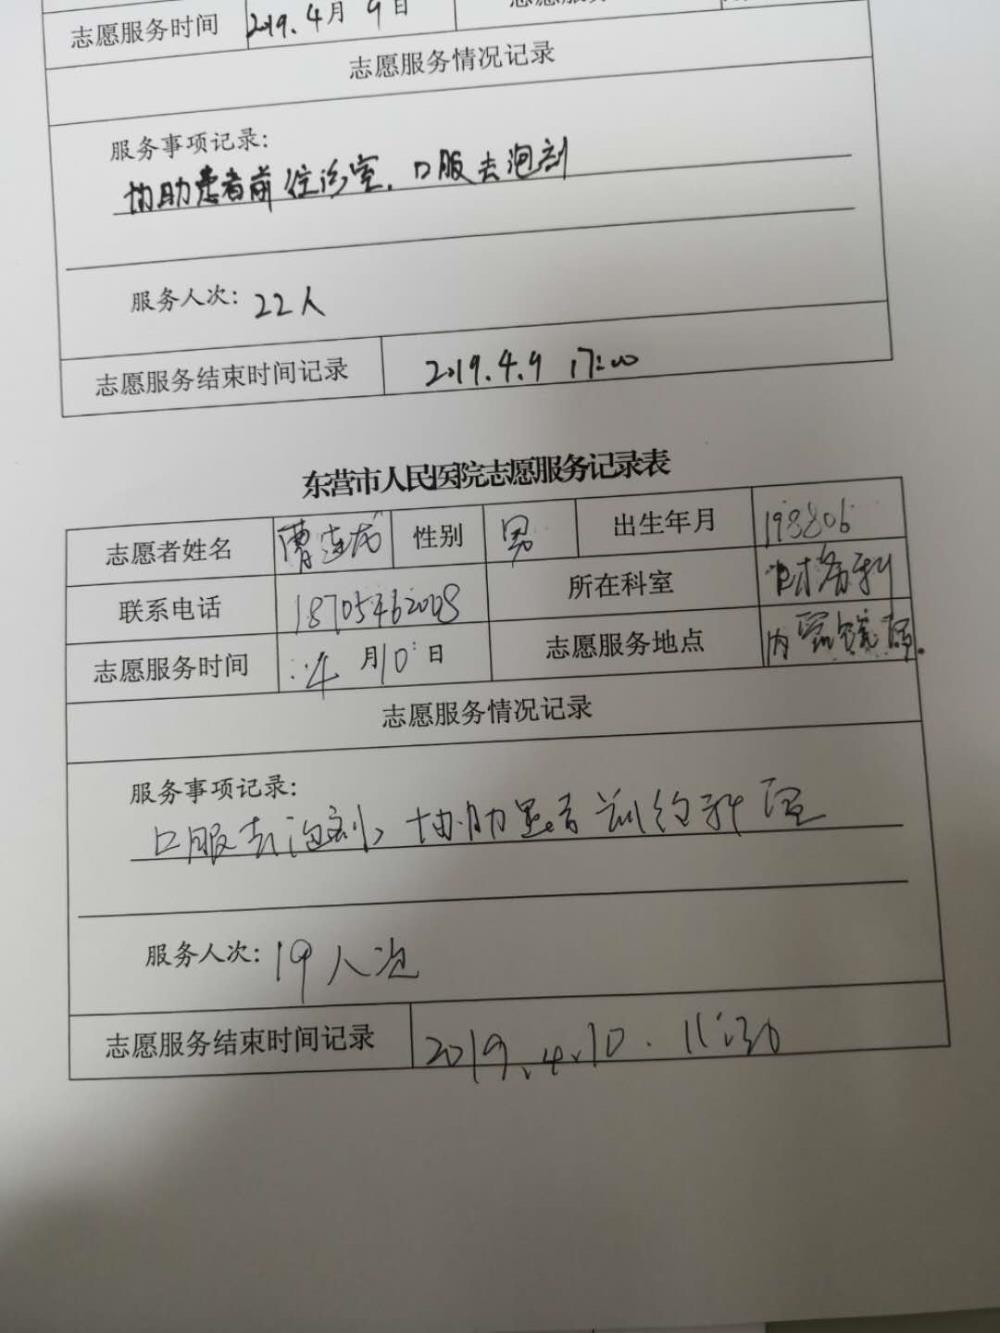 志愿服务时间 2019.4月9日
志愿服务情况记录
服务事项记录:
协助患者前往诊室,口服去泡剂
服务人次: 22人
志愿服务结束时间记录 2019.4.9 17:00
东营市人民医院志愿服务记录表
志愿者姓名 曹 性别 男 出生年月 198806
联系电话 18705462008 所在科室 财务科
志愿服务时间 4月10日 志愿服务地点 内
志愿服务情况记录
服务事项记录:
口服去泡剂,协助患者
服务人次: 19人次
志愿服务结束时间记录 2019.4.10. 11:30